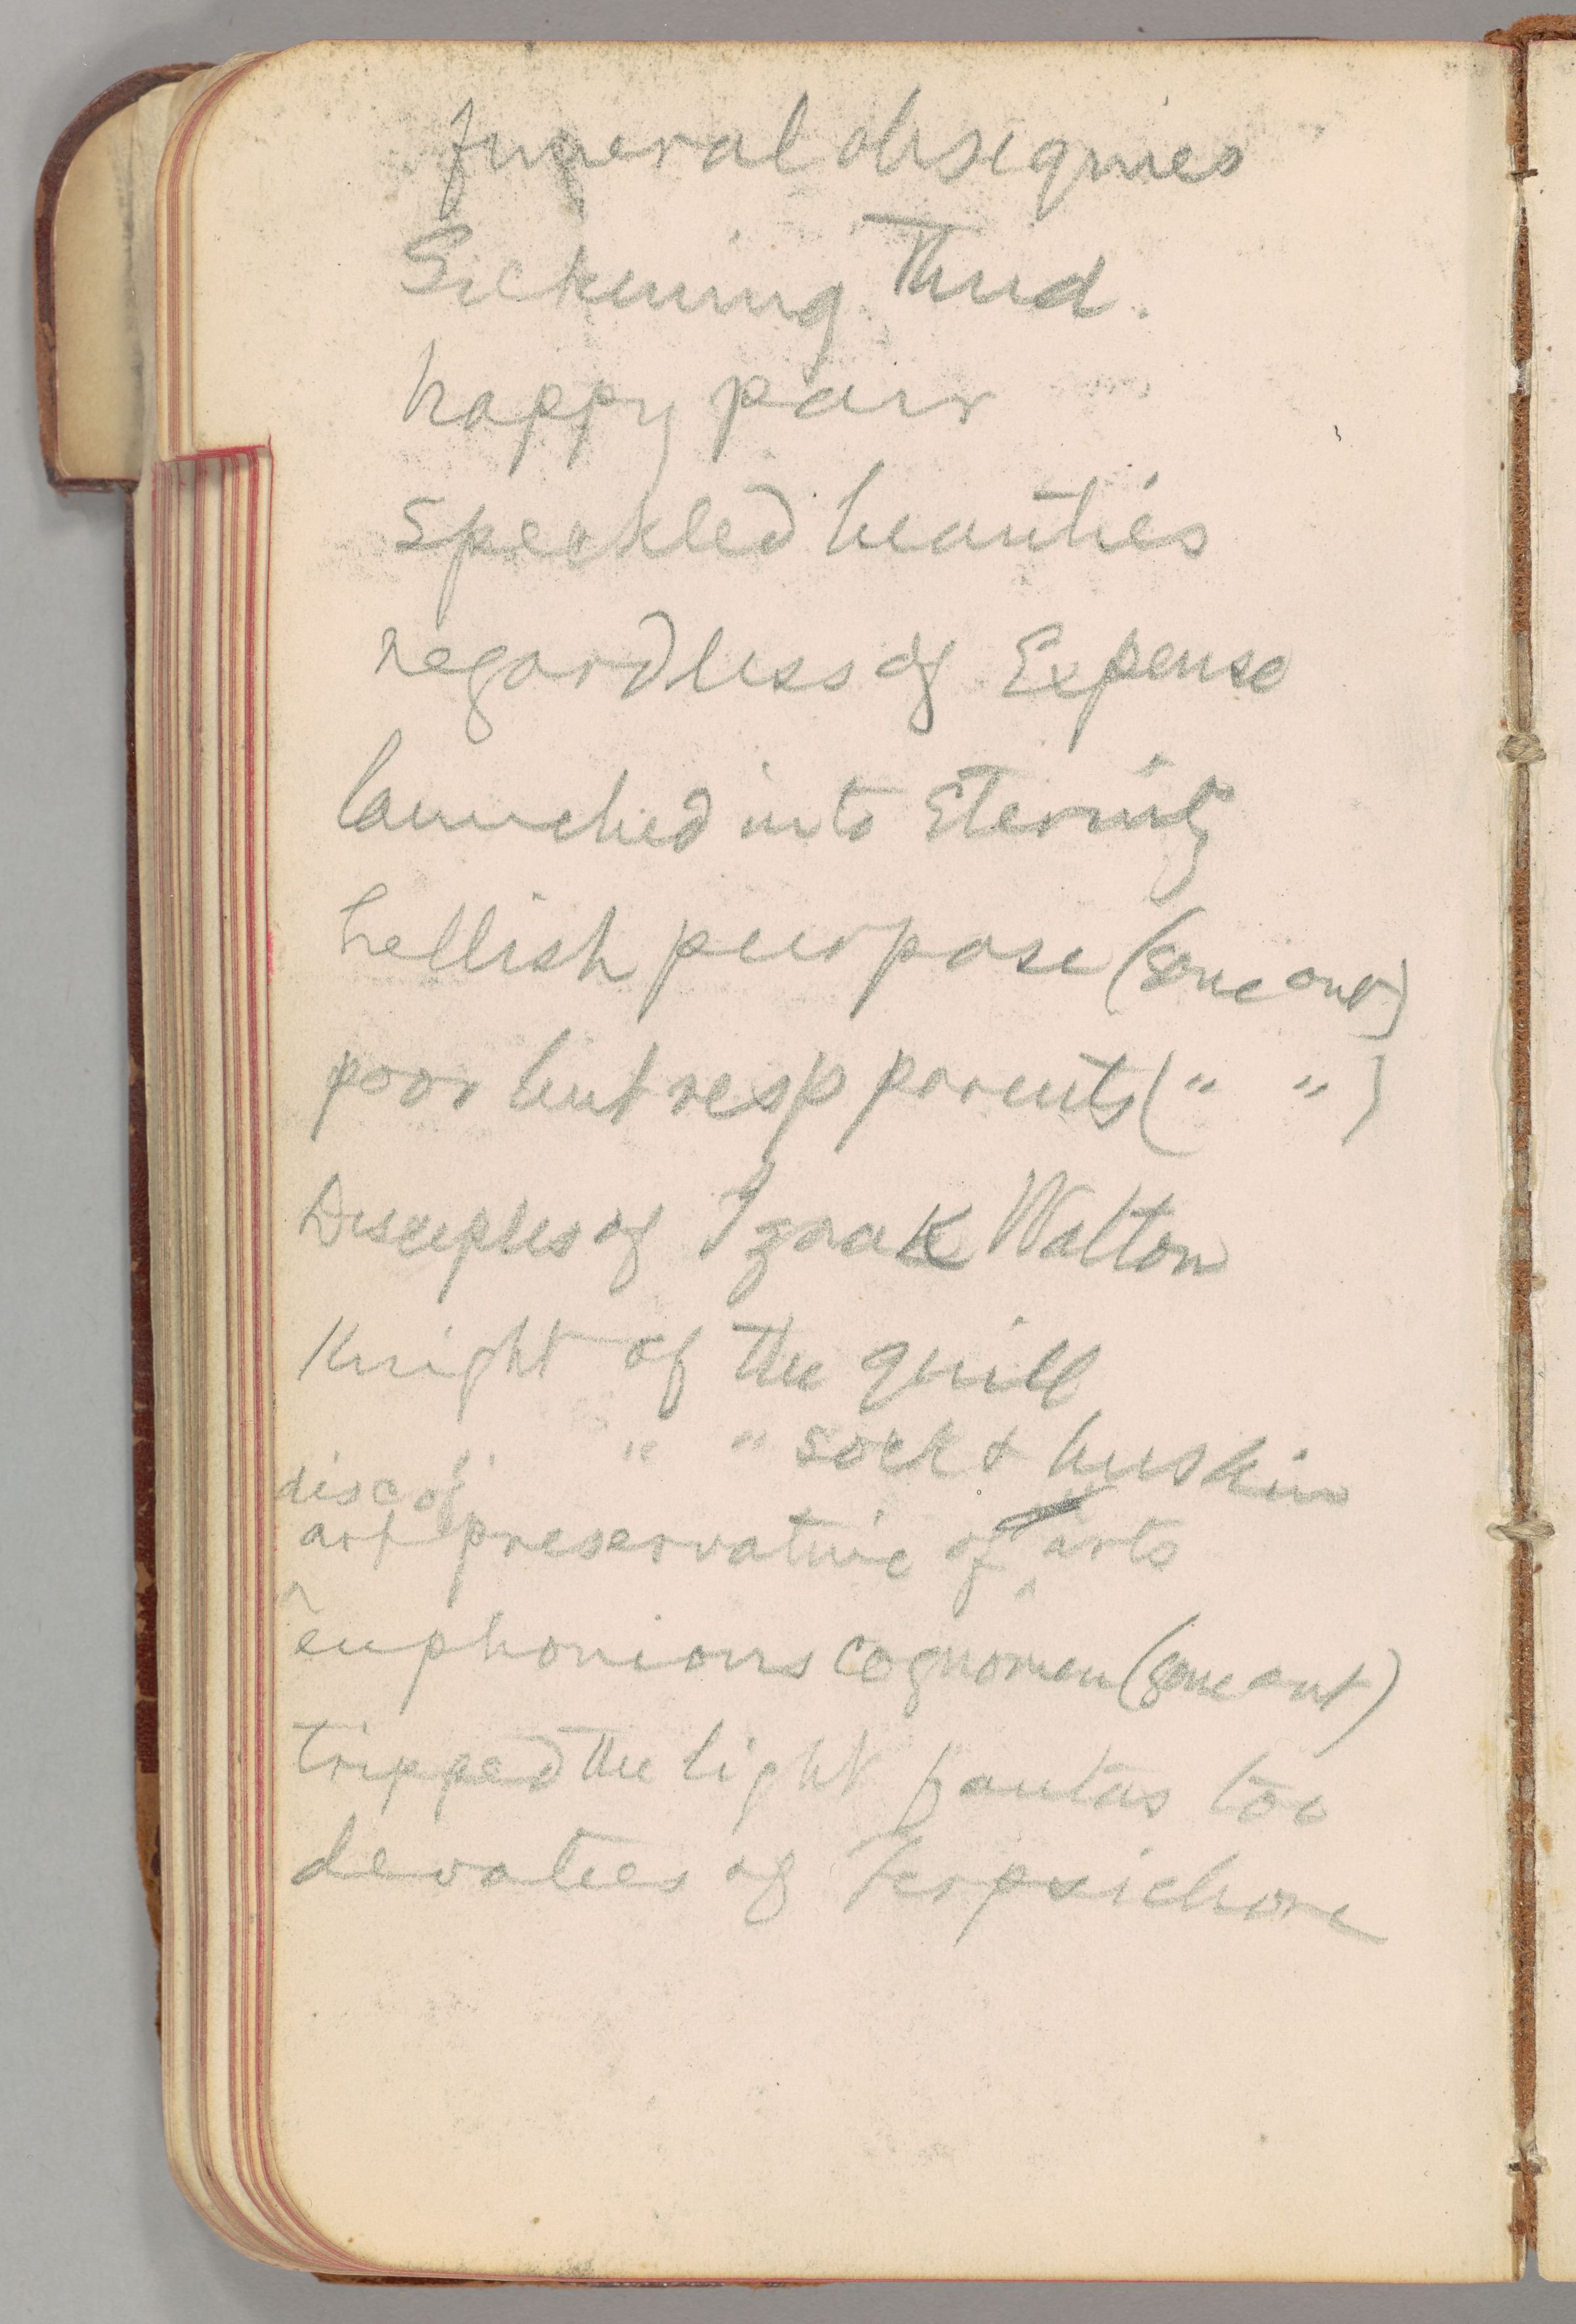 funeral obsequies
Sickening Thud.
happy pair
speckled beauties
regardless of Expense
launched into Eternity
hellish purpose (gone out)
poor but resp parents (" ")
Disciples of Izaak Walton
Knight of the quill
" " " sock & buskin
disc of
art preservative of arts
euphonious cognomen (gone out)
tripped the light fantas toe
devotees of Terpsichore